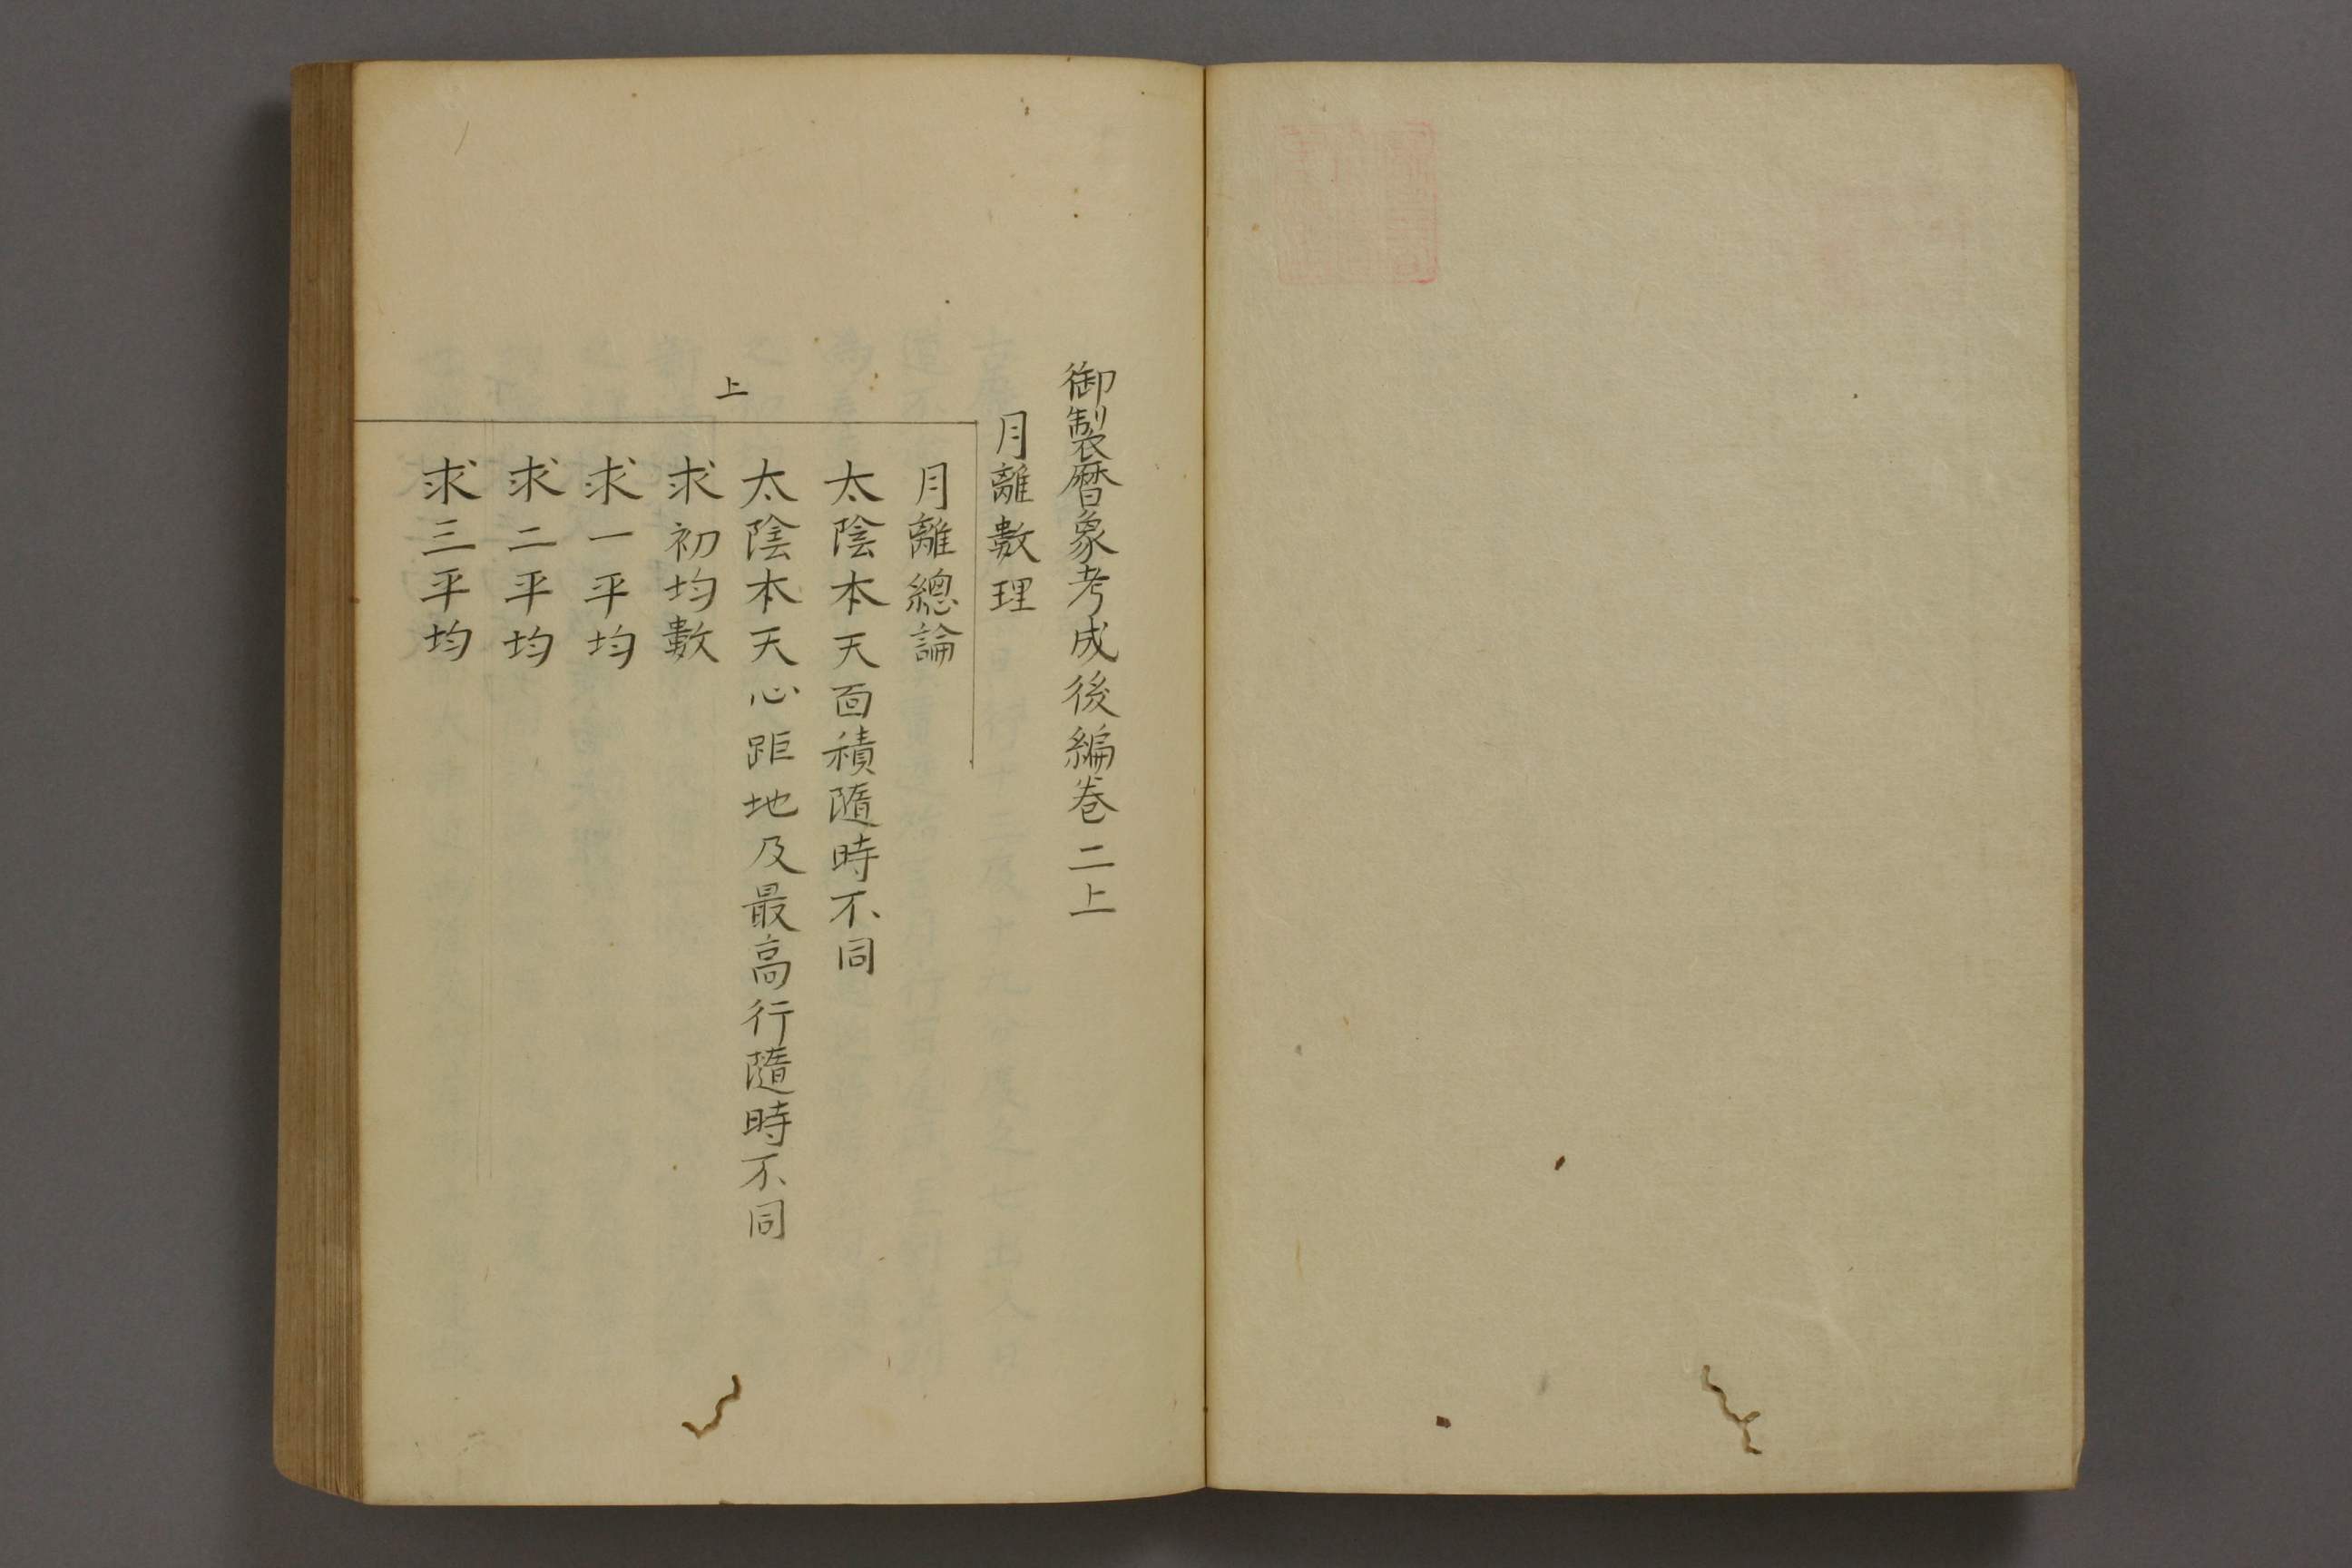 御製暦象考成後編巻二上
月離數理
上
月離總論
太陰本天面積隨時不同
太陰本天心距地及最高行隨時不同
求初均數
求一平均
求二平均
求三平均